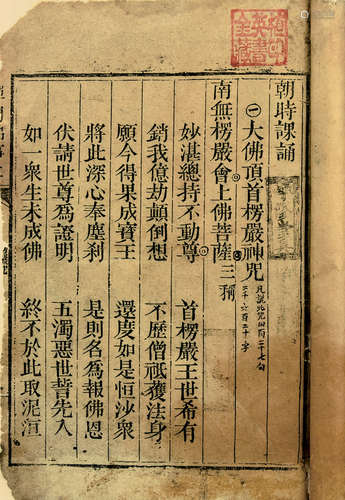 朝時課誦
㊀大佛頂首楞嚴神咒
南無楞嚴會上佛菩薩三稱
妙湛總持不動尊　首楞嚴王世希有
銷我億劫顛倒想　不歷僧祇獲法身
願今得果成寶王　還度如是恒沙眾
將此深心奉塵剎　是則名爲報佛恩
伏請世尊爲證明　五濁惡世誓先入
如一眾生未成佛　終不於此取泥洹